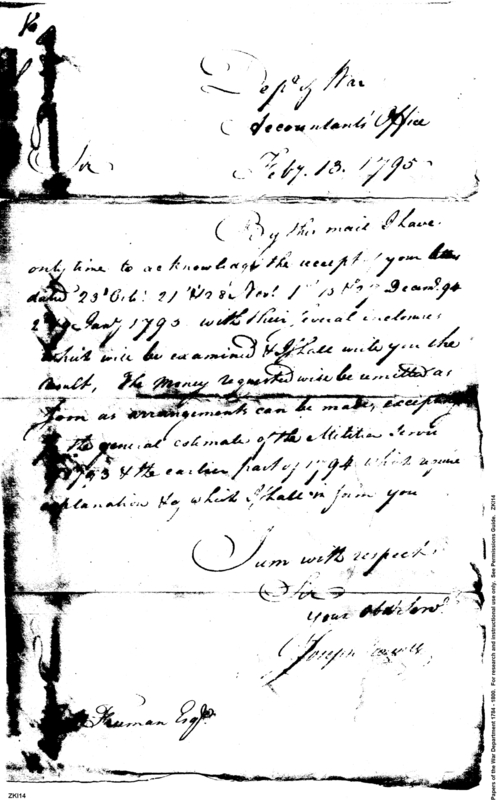 Dept of War
Accountants Office
Feby. 13. 1795
Sir
By this mail I have
only time to acknowledge the receept of your letters
dated 23d Octr. 21 & 28 Novr. 1st 13 & 27 Decemr. 94
2 & 9 Jany 1795 with their several inclosures
which will be examined & I shall write you the
result, The money requested will be remitted as
soon as arrangements can be made, excepting
the general estimate of the Militia Service
1793 & the earlier part of 1794 which require
explanation & of which I shall inform you
I am with respect
Sir
your Obdt Servt
Joseph Howell
Freeman Esqr.
Papers of the War Department 1784 - 1800. For research and instructional use only. See Permissions Guide. ZKI14
ZKI14